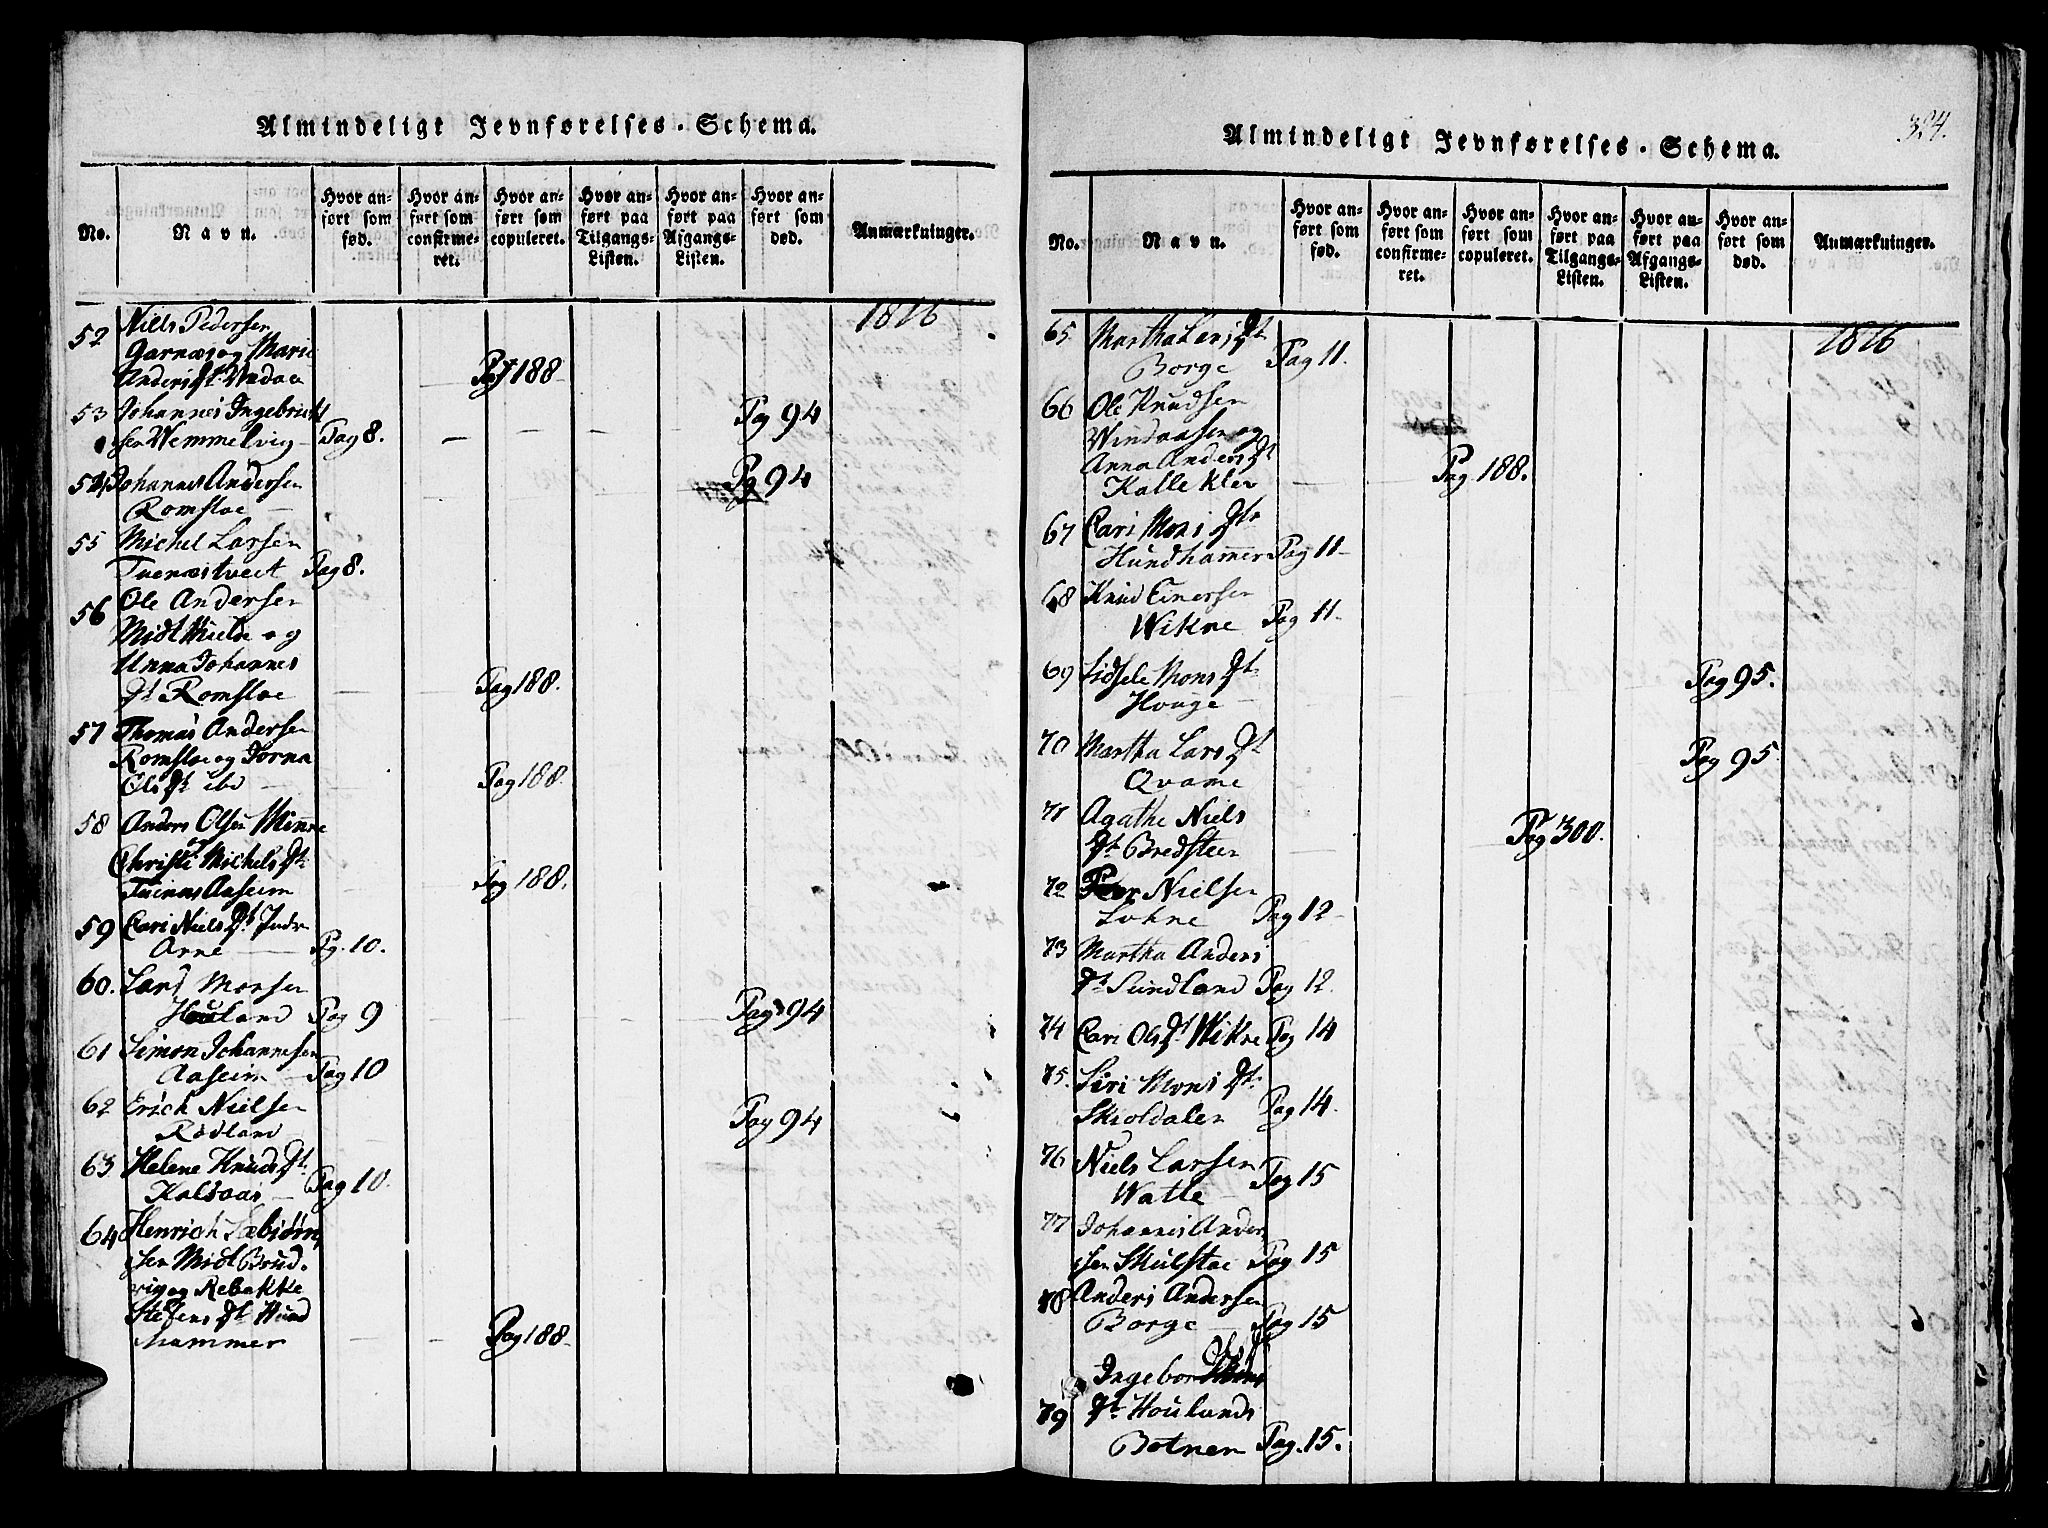 Almindeligt Jevnførelses-Schema.
No.
Navn.
Hvor an-
ført som
fød.
Hvor an-
ført som
confirme-
ret.
Hvor an-
ført som
copuleret.
Hvor an-
ført paa
Tilgangs-
Listen.
Hvor an-
ført paa
Afgangs-
Listen.
Hvor an-
ført som
død.
Anmærkninger.
1816
52 Niels Pedersen
Garnæs og Marie
Andersdt. Pag 188
53 Johannes Ingebrict
sen Wemmelvig Pag 8. Pg 94
54 Johannes Andersen
Romsloe Pg 94
55 Michel Larsen
Tuenæstveet Pag 8.
56 Ole Andersen
Midt og
Anna Johannes
dt Romsloe Pag 188.
57 Thomas Andersen
Romsloe og
Olsdt ibd Pag 188.
58 Anders Olsen
Michels dt.
Aaseim Pag 188.
59 Cari Niels dt Indr
Arne Pg. 10.
60. Lars Monsen
Houland Pag 9 Pag 94
61 Simon Johannesen
Aaseim Pag 10
62 Erich Nielsen
Rødland Pag 94
63 Helene Knuds dt.
Kaldaas Pag 10.
64 Henrich Sæbiørn
sen Midt Brud-
vig og Rebekke
Stefens dt Hund
hammer Pag 188.
324.
Almindeligt Jevnførelses-Schema.
No.
Navn.
Hvor an-
ført som
fød.
Hvor an-
ført som
confirme-
ret.
Hvor an-
ført som
copuleret.
Hvor an-
ført paa
Tilgangs-
Listen.
Hvor an-
ført paa
Afgangs-
Listen.
Hvor an-
ført som
død.
Anmærkninger.
1816
65 Martha Larsdt.
Borge Pag 11.
66 Ole Knudsen
og
Anna Andersdt
Kallekler Pag 188.
67 Cari Mons dtr
Hundhammer Pag 11
68 Knud Einersen
Wikne Pag 11
69 Sidsele Mons dt.
Houge Pag 95.
70 Martha Lars dt
Qvame Pag 95
71 Agathe Niels
dt Bredsteen Pag 300.
72 Nielsen
Lohne Pag 12
73 Martha Anders
dt Sundland Pag 12.
74 Cari Ols dt Wikne Pag 14
75. Siri Mons dt.
Skioldalen Pag 14.
76 Niels Larsen
Watle Pag 15
77 Johannes Ander
sen Skulstae Pag 15
78 Anders Andersen
Borge Pag 15
Ingebor
79 dt Houlands
Botnen Pag. 15.